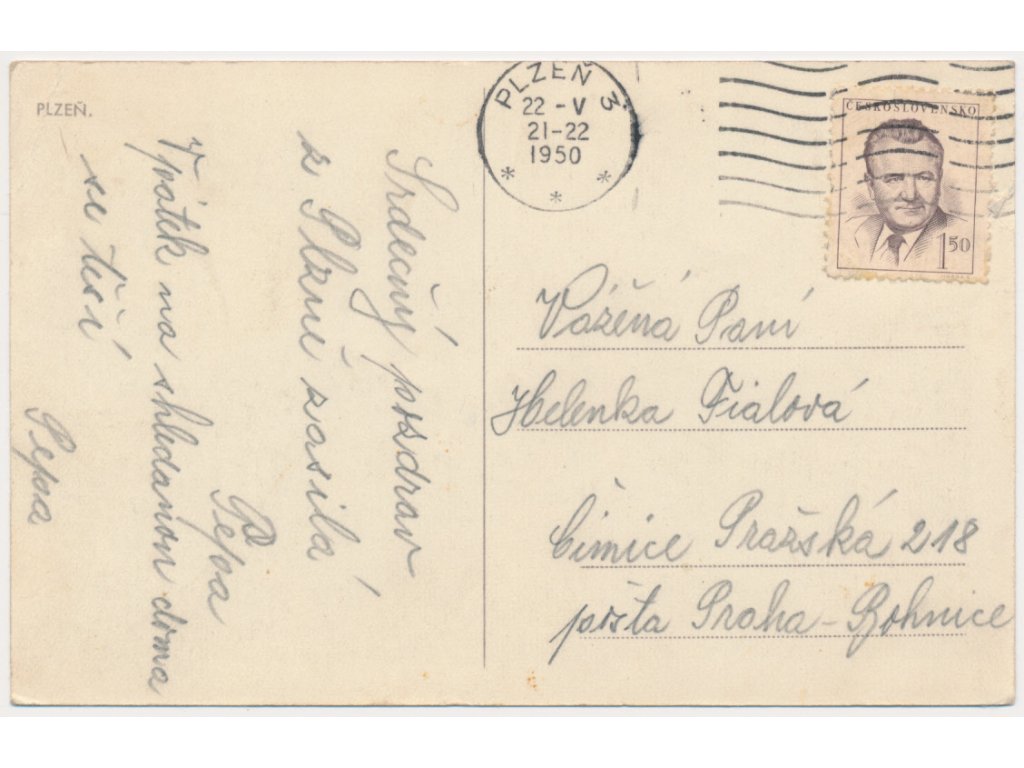 PLZEŇ.
Srdečný pozdrav
z Plzně zasílá
Pepa
V pátek na shledanou doma
se těší
Pepa
PLZEŇ 3
22 -V
21-22
1950
* * *
ČESKOSLOVENSKO
1 50
Vážená Paní
Helenka Fialová
Čimice Pražská 218
pošta Praha-Bohnice